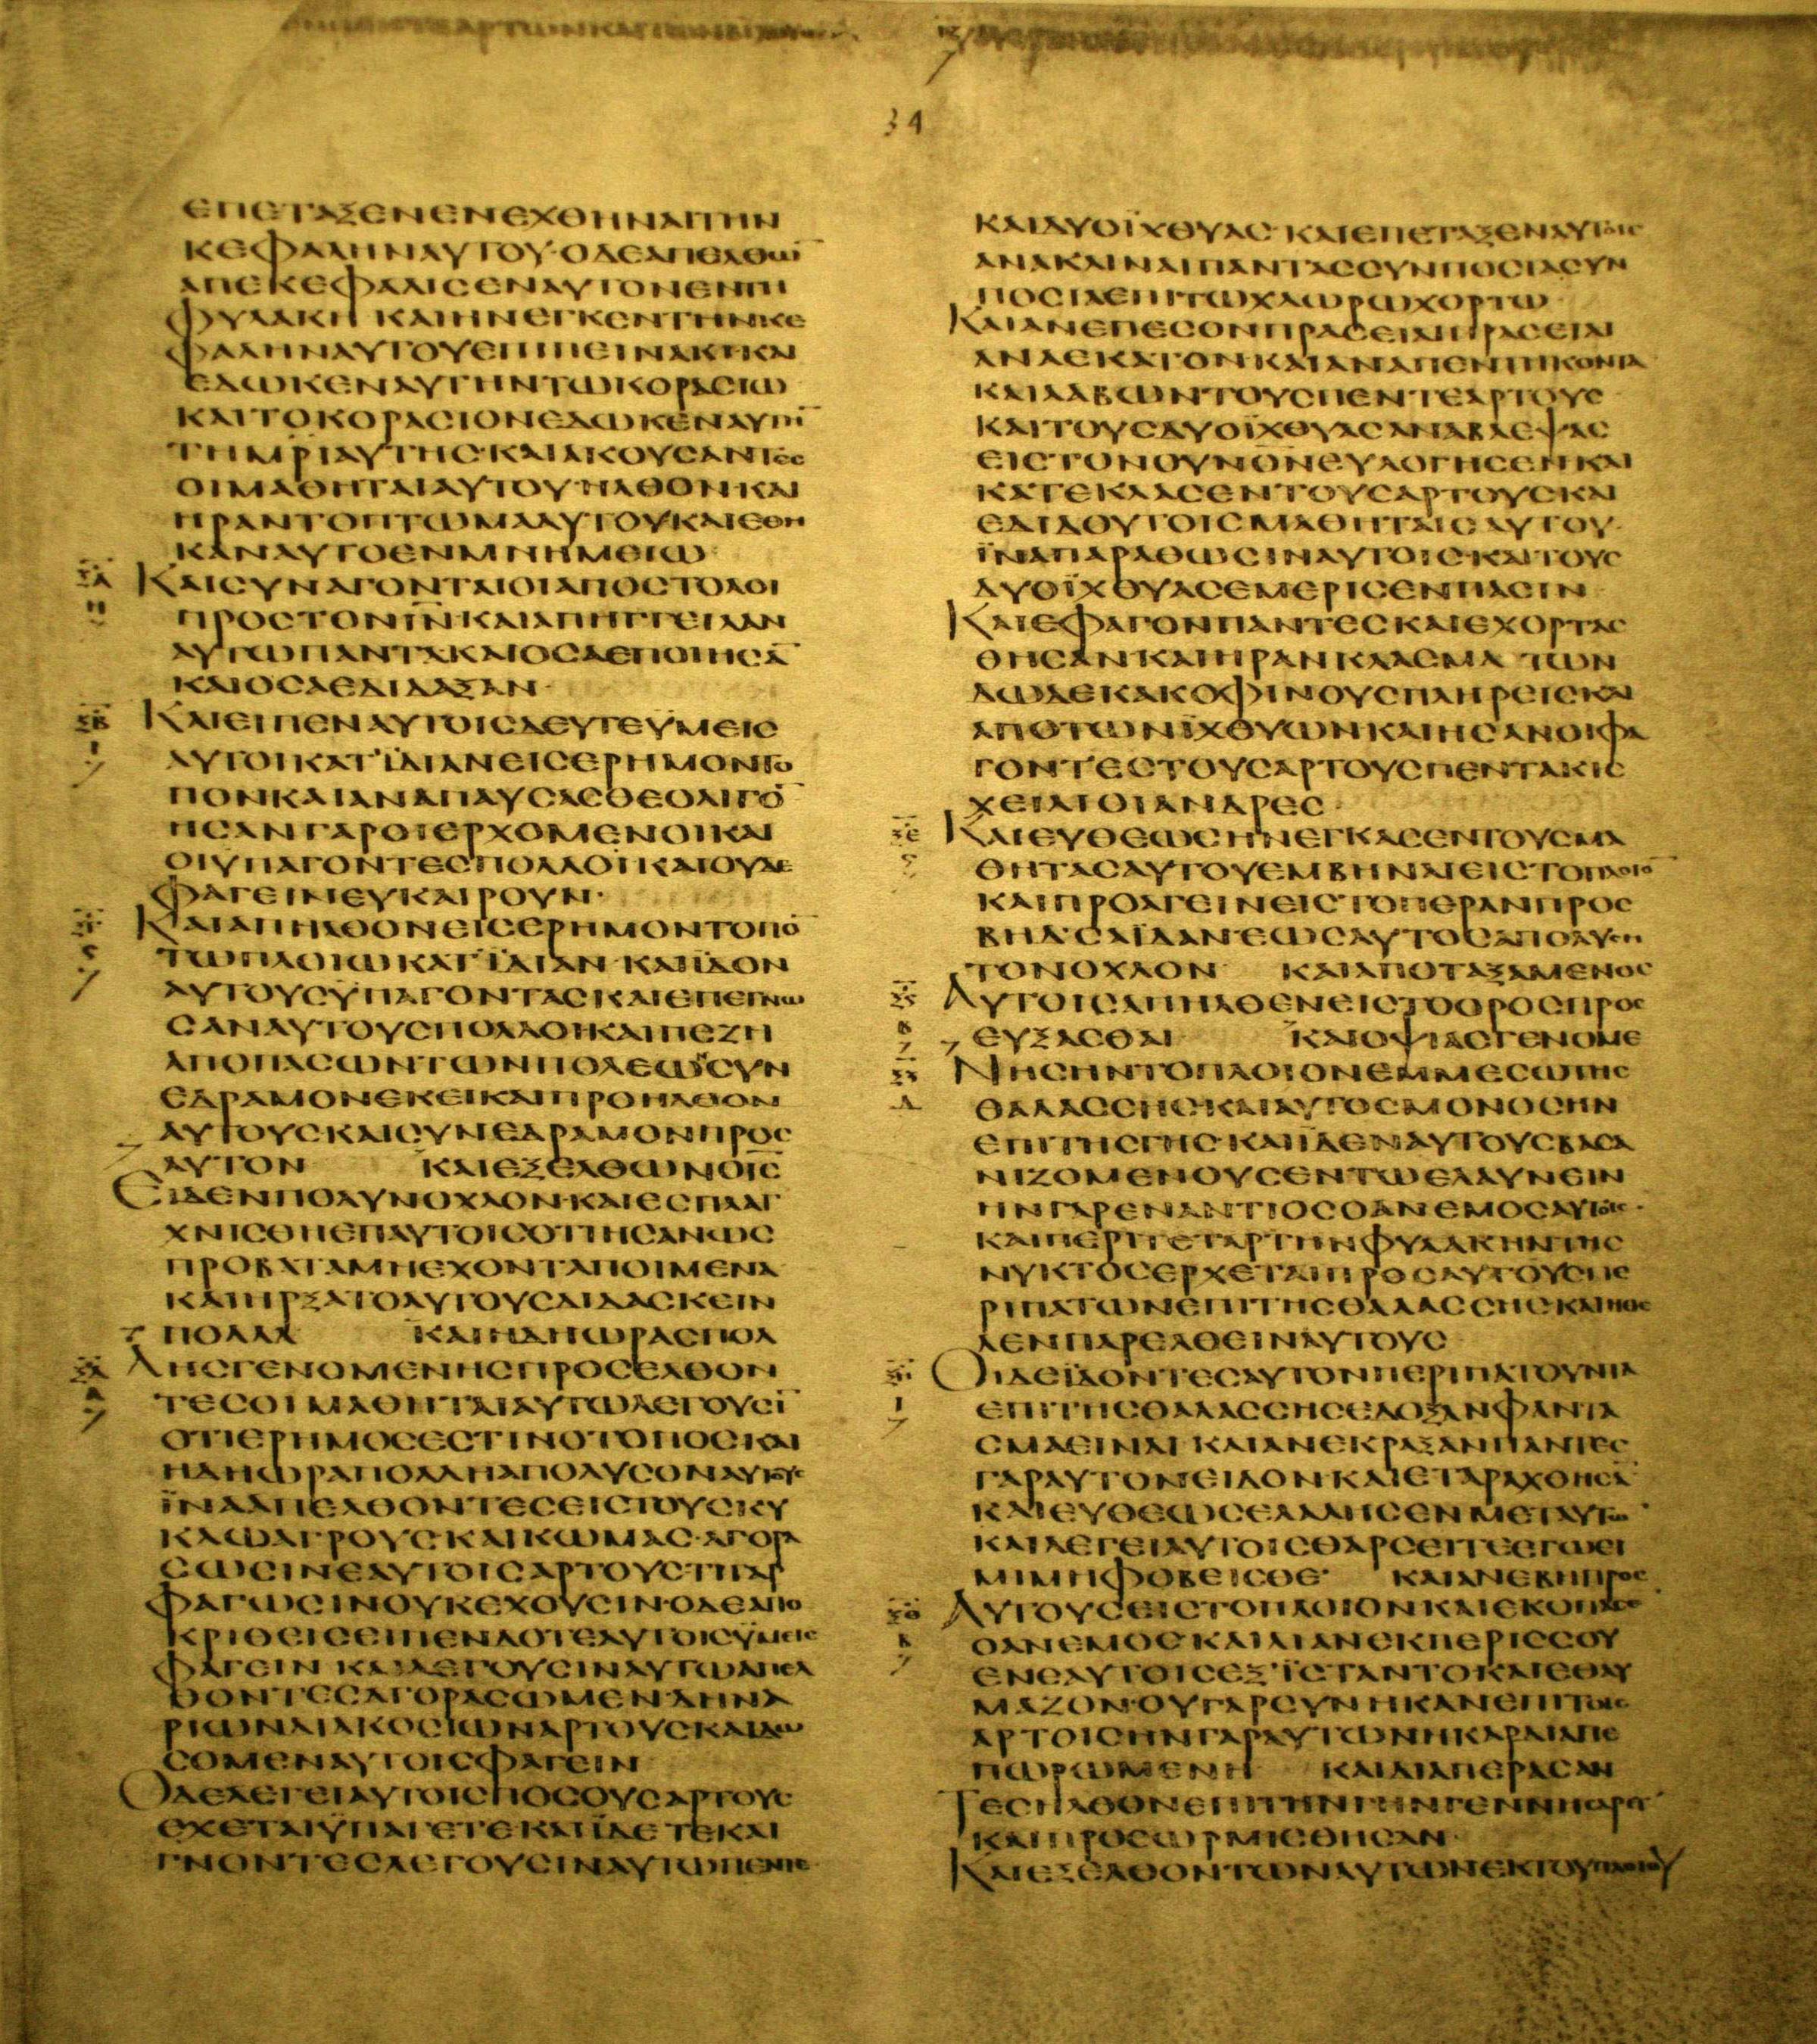 34
ΕΠΕΤΑΞΕΝΕΝΕΧΘΗΝΑΙΤΗΝ
ΚΕΦΑΛΗΝΑΥΤΟΥ·ΟΔΕΑΠΕΛΘΩ̅
ΑΠΕΚΕΦΑΛΙϹΕΝΑΥΤΟΝΕΝΤΗ
ΦΥΛΑΚΗ ΚΑΙΗΝΕΓΚΕΝΤΗΝΚΕ
ΦΑΛΗΝΑΥΤΟΥΕΠΙΠΕΙΝΑΚΙΚΑΙ
ΕΔΩΚΕΝΑΥΤΗΝΤΩΚΟΡΑϹΙΩ
ΚΑΙΤΟΚΟΡΑϹΙΟΝΕΔΩΚΕΝΑΥΤΗ̅
ΤΗΜΡΙΑΥΤΗϹΚΑΙΑΚΟΥϹΑΝΤΕϹ
ΟΙΜΑΘΗΤΑΙΑΥΤΟΥΗΛΘΟΝΚΑΙ
ΗΡΑΝΤΟΠΤΩΜΑΑΥΤΟΥΚΑΙΕΘΗ
ΚΑΝΑΥΤΟΕΝΜΝΗΜΕΙΩ
ΞΑ ΚΑΙϹΥΝΑΓΟΝΤΑΙΟΙΑΠΟϹΤΟΛΟΙ
Η ΠΡΟϹΤΟΝΙ̅Ν̅ΚΑΙΑΠΗΓΓΕΙΛΑΝ
ΑΥΤΩΠΑΝΤΑΚΑΙΟϹΑΕΠΟΙΗϹΑ̅
ΚΑΙΟϹΑΕΔΙΔΑΞΑΝ·
ΞΒ ΚΑΙΕΙΠΕΝΑΥΤΟΙϹΔΕΥΤΕΥΜΕΙϹ
Ι ΑΥΤΟΙΚΑΤΪΔΙΑΝΕΙϹΕΡΗΜΟΝΤΟ
ΠΟΝΚΑΙΑΝΑΠΑΥϹΑϹΘΕΟΛΙΓΟ̅
ΗϹΑΝΓΑΡΟΙΕΡΧΟΜΕΝΟΙΚΑΙ
ΟΙΥΠΑΓΟΝΤΕϹΠΟΛΛΟΙΚΑΙΟΥΔΕ
ΦΑΓΕΙΝΕΥΚΑΙΡΟΥΝ·
ΞΓ ΚΑΙΑΠΗΛΘΟΝΕΙϹΕΡΗΜΟΝΤΟΠΟ̅
ΤΩΠΛΟΙΩΚΑΤΪΔΙΑΝ ΚΑΙΙΔΟΝ
ΑΥΤΟΥϹΥΠΑΓΟΝΤΑϹΚΑΙΕΠΕΓΝΩ
ϹΑΝΑΥΤΟΥϹΠΟΛΛΟΙΚΑΙΠΕΖΗ
ΑΠΟΠΑϹΩΝΤΩΝΠΟΛΕΩΝϹΥΝ
ΕΔΡΑΜΟΝΕΚΕΙΚΑΙΠΡΟΗΛΘΟΝ
ΑΥΤΟΥϹΚΑΙϹΥΝΕΔΡΑΜΟΝΠΡΟϹ
ΑΥΤΟΝ ΚΑΙΕΞΕΛΘΩΝΟΙϹ
ΕΙΔΕΝΠΟΛΥΝΟΧΛΟΝΚΑΙΕϹΠΛΑΓ
ΧΝΙϹΘΗΕΠΑΥΤΟΙϹΟΤΙΗϹΑΝΩϹ
ΠΡΟΒΑΤΑΜΗΕΧΟΝΤΑΠΟΙΜΕΝΑ
ΚΑΙΗΡΞΑΤΟΑΥΤΟΥϹΔΙΔΑϹΚΕΙΝ
ΠΟΛΛΑ ΚΑΙΗΔΗΩΡΑϹΠΟΛ
ΞΔ ΛΗϹΓΕΝΟΜΕΝΗϹΠΡΟϹΕΛΘΟΝ
ΤΕϹΟΙΜΑΘΗΤΑΙΑΥΤΩΛΕΓΟΥϹΙ̅
ΟΤΙΕΡΗΜΟϹΕϹΤΙΝΟΤΟΠΟϹΚΑΙ
ΗΔΗΩΡΑΠΟΛΛΗΑΠΟΛΥϹΟΝΑΥΤΟΥϹ
ΪΝΑΑΠΕΛΘΟΝΤΕϹΕΙϹΤΟΥϹΚΥ
ΚΛΩΑΓΡΟΥϹΚΑΙΚΩΜΑϹ·ΑΓΟΡΑ
ϹΩϹΙΝΕΑΥΤΟΙϹΑΡΤΟΥϹΤΙΓΑΡ
ΦΑΓΩϹΙΝΟΥΚΕΧΟΥϹΙΝΟΔΕΑΠΟ
ΚΡΙΘΕΙϹΕΙΠΕΝΔΟΤΕΑΥΤΟΙϹΥΜΕΙϹ
ΦΑΓΕΙΝ ΚΑΙΛΕΓΟΥϹΙΝΑΥΤΩΑΠΕΛ
ΘΟΝΤΕϹΑΓΟΡΑϹΩΜΕΝΔΗΝΑ
ΡΙΩΝΔΙΑΚΟϹΙΩΝΑΡΤΟΥϹΚΑΙΔΩ
ϹΟΜΕΝΑΥΤΟΙϹΦΑΓΕΙΝ
ΟΔΕΛΕΓΕΙΑΥΤΟΙϹΠΟϹΟΥϹΑΡΤΟΥϹ
ΕΧΕΤΑΙΫΠΑΓΕΤΕΚΑΙΪΔΕΤΕΚΑΙ
ΓΝΟΝΤΕϹΛΕΓΟΥϹΙΝΑΥΤΩΠΕΝΤΕ
ΚΑΙΔΥΟΪΧΘΥΑϹ ΚΑΙΕΠΕΤΑΞΕΝΑΥΤΟΙϹ
ΑΝΑΚΛΙΝΑΙΠΑΝΤΑϹϹΥΝΠΟϹΙΑϹΥΝ
ΠΟϹΙΑΕΠΙΤΩΧΛΩΡΩΧΟΡΤΩ
ΚΑΙΑΝΕΠΕϹΟΝΠΡΑϹΕΙΑΙΠΡΑϹΕΙΑΙ
ΑΝΑΕΚΑΤΟΝΚΑΙΑΝΑΠΕΝΤΗΚΟΝΤΑ
ΚΑΙΛΑΒΩΝΤΟΥϹΠΕΝΤΕΑΡΤΟΥϹ
ΚΑΙΤΟΥϹΔΥΟΪΧΘΥΑϹΑΝΑΒΛΕΨΑϹ
ΕΙϹΤΟΝΟΥΝΟΝΕΥΛΟΓΗϹΕΝΚΑΙ
ΚΑΤΕΚΛΑϹΕΝΤΟΥϹΑΡΤΟΥϹΚΑΙ
ΕΔΙΔΟΥΤΟΙϹΜΑΘΗΤΑΙϹΑΥΤΟΥ
ΪΝΑΠΑΡΑΘΩϹΙΝΑΥΤΟΙϹΚΑΙΤΟΥϹ
ΔΥΟΪΧΘΥΑϹΕΜΕΡΙϹΕΝΠΑϹΙΝ
ΚΑΙΕΦΑΓΟΝΠΑΝΤΕϹΚΑΙΕΧΟΡΤΑϹ
ΘΗϹΑΝΚΑΙΗΡΑΝΚΛΑϹΜΑΤΩΝ
ΔΩΔΕΚΑΚΟΦΙΝΟΥϹΠΛΗΡΕΙϹΚΑΙ
ΑΠΟΤΩΝΪΧΘΥΩΝΚΑΙΗϹΑΝΟΙΦΑ
ΓΟΝΤΕϹΤΟΥϹΑΡΤΟΥϹΠΕΝΤΑΚΙϹ
ΧΕΙΛΙΟΙΑΝΔΡΕϹ·
ΞΕ ΚΑΙΕΥΘΕΩϹΗΝΕΓΚΑϹΕΝΤΟΥϹΜΑ
ΘΗΤΑϹΑΥΤΟΥΕΜΒΗΝΑΙΕΙϹΤΟΠΛΟΙΟ̅
ΚΑΙΠΡΟΑΓΕΙΝΕΙϹΤΟΠΕΡΑΝΠΡΟϹ
ΒΗΔϹΑΙΔΑΝΕΩϹΑΥΤΟϹΑΠΟΛΥϹΗ
ΤΟΝΟΧΛΟΝ ΚΑΙΑΠΟΤΑΞΑΜΕΝΟϹ
ΞϚ ΑΥΤΟΙϹΑΠΗΛΘΕΝΕΙϹΤΟΟΡΟϹΠΡΟϹ
ΕΥΞΑϹΘΑΙ ΚΑΙΟΨΙΑϹΓΕΝΟΜΕ
ΞΖ ΝΗϹΗΝΤΟΠΛΟΙΟΝΕΜΜΕϹΩΤΗϹ
Δ ΘΑΛΑϹϹΗϹΚΑΙΑΥΤΟϹΜΟΝΟϹΗΝ
ΕΠΙΤΗϹΓΗϹΚΑΙΪΔΕΝΑΥΤΟΥϹΒΑϹΑ
ΝΙΖΟΜΕΝΟΥϹΕΝΤΩΕΛΑΥΝΕΙΝ
ΗΝΓΑΡΕΝΑΝΤΙΟϹΟΑΝΕΜΟϹΑΥΤΟΙϹ·
ΚΑΙΠΕΡΙΤΕΤΑΡΤΗΝΦΥΛΑΚΗΝΤΗϹ
ΝΥΚΤΟϹΕΡΧΕΤΑΙΠΡΟϹΑΥΤΟΥϹΠΕ
ΡΙΠΑΤΩΝΕΠΙΤΗϹΘΑΛΑϹϹΗϹΚΑΙΗΘΕ
ΛΕΝΠΑΡΕΛΘΕΙΝΑΥΤΟΥϹ
ΞΗ ΟΙΔΕΪΔΟΝΤΕϹΑΥΤΟΝΠΕΡΙΠΑΤΟΥΝΤΑ
ΕΠΙΤΗϹΘΑΛΑϹϹΗϹΕΔΟΞΑΝΦΑΝΤΑ
ϹΜΑΕΙΝΑΙ ΚΑΙΑΝΕΚΡΑΞΑΝΠΑΝΤΕϹ
ΓΑΡΑΥΤΟΝΕΙΔΟΝΚΑΙΕΤΑΡΑΧΘΗϹΑ̅
ΚΑΙΕΥΘΕΩϹΕΛΑΛΗϹΕΝΜΕΤΑΥΤΩ̅
ΚΑΙΛΕΓΕΙΑΥΤΟΙϹΘΑΡϹΕΙΤΕΕΓΩΕΙ
ΜΙΜΗΦΟΒΕΙϹΘΕ· ΚΑΙΑΝΕΒΗΠΡΟϹ
ΞΘ ΑΥΤΟΥϹΕΙϹΤΟΠΛΟΙΟΝΚΑΙΕΚΟΠΑϹΕ
ΟΑΝΕΜΟϹΚΑΙΛΙΑΝΕΚΠΕΡΙϹϹΟΥ
ΕΝΕΑΥΤΟΙϹΕΞΙϹΤΑΝΤΟΚΑΙΕΘΑΥ
ΜΑΖΟΝ·ΟΥΓΑΡϹΥΝΗΚΑΝΕΠΙΤΟΙϹ
ΑΡΤΟΙϹΗΝΓΑΡΑΥΤΩΝΗΚΑΡΔΙΑΠΕ
ΠΩΡΩΜΕΝΗ ΚΑΙΔΙΑΠΕΡΑϹΑΝ
ΤΕϹΗΛΘΟΝΕΠΙΤΗΝΓΗΝΓΕΝΝΗϹΑΡΕΤ
ΚΑΙΠΡΟϹΩΡΜΙϹΘΗϹΑΝ·
ΚΑΙΕΞΕΛΘΟΝΤΩΝΑΥΤΩΝΕΚΤΟΥΠΛΟΙΟΥ